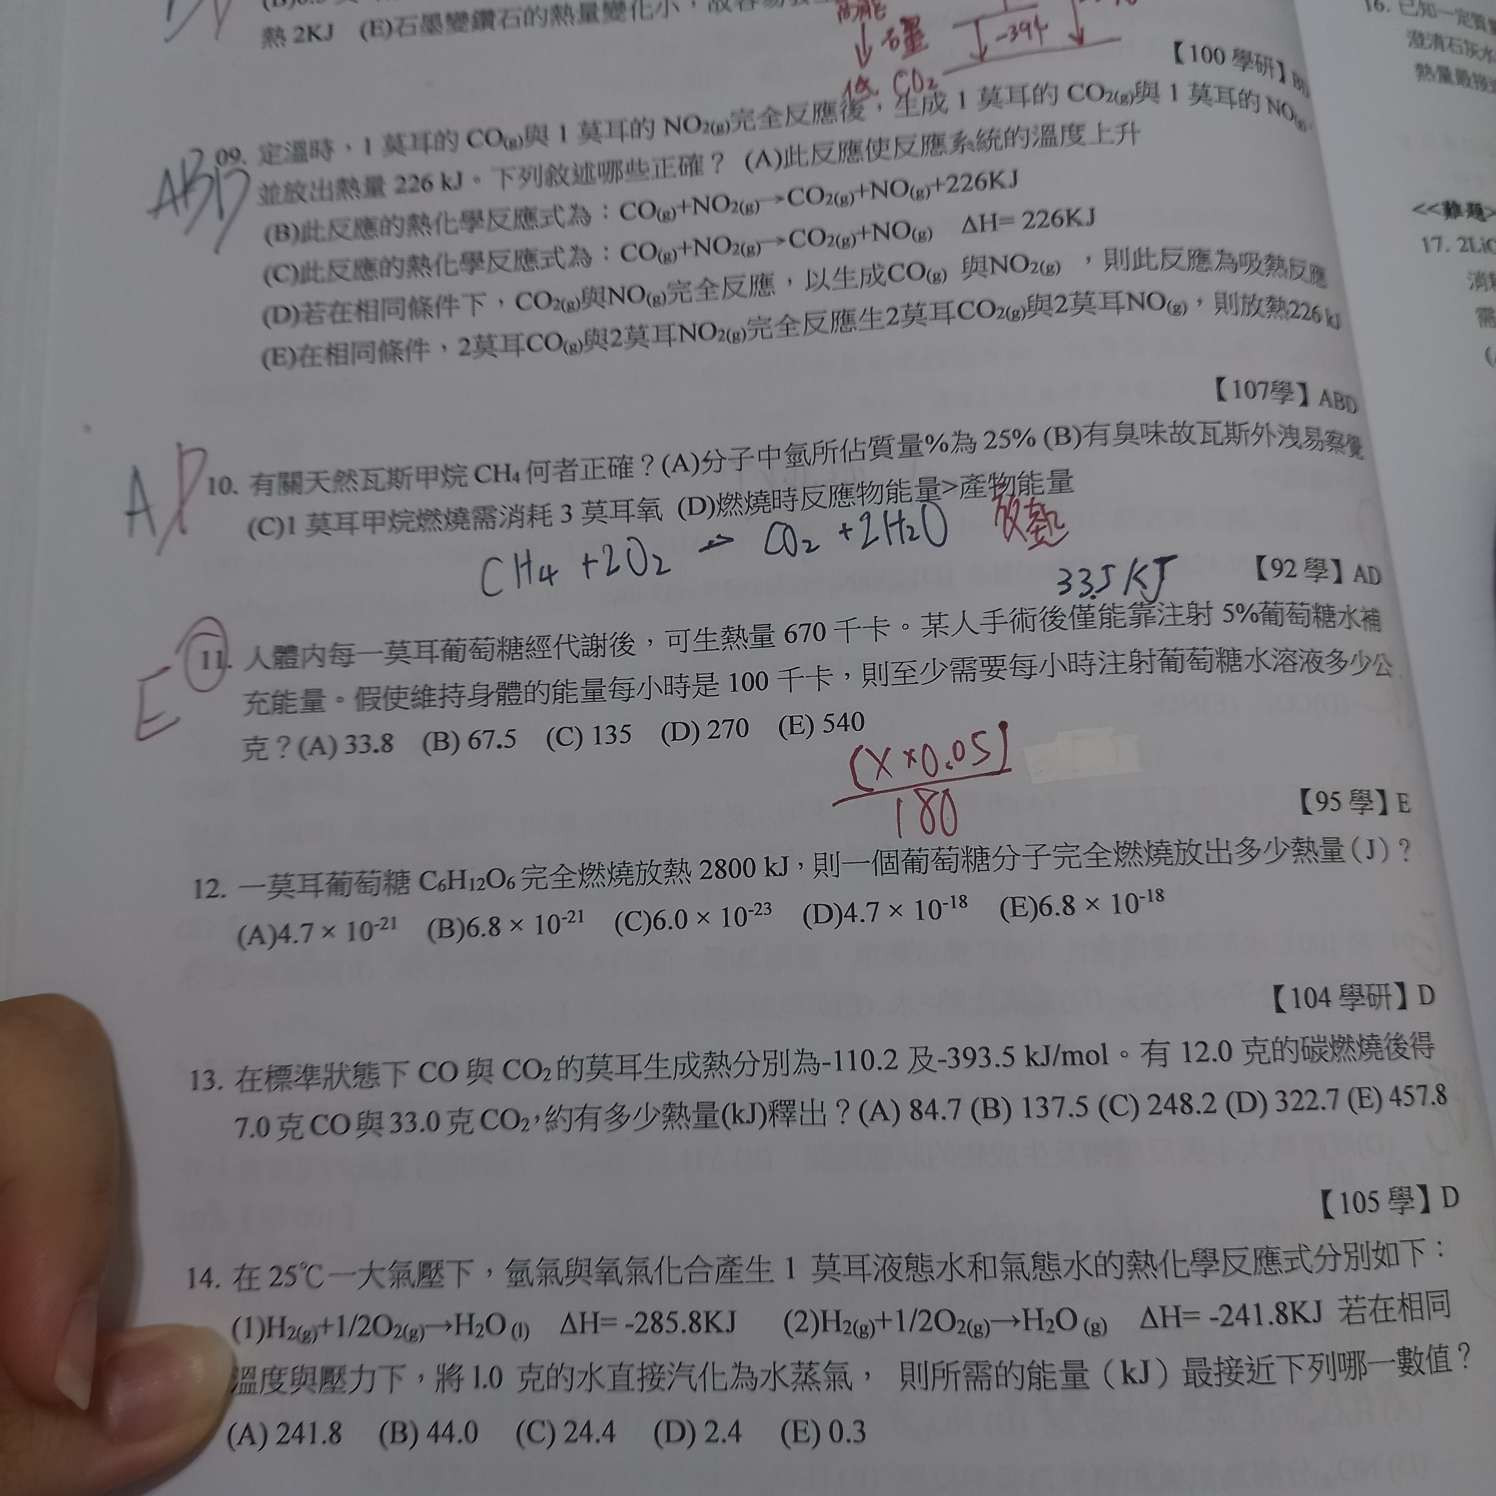 熱 2KJ (E)石墨變鑽石的熱量變化小,故容易
石墨
-394
CO₂
【100 學研】
09. 定溫時,1 莫耳的 CO(g)與 1 莫耳的 NO₂(g)完全反應後,生成 1 莫耳的 CO₂(g)與 1 莫耳的 NO(g),
並放出熱量 226 kJ。下列敘述哪些正確? (A)此反應使反應系統的溫度上升
(B)此反應的熱化學反應式為:CO(g)+NO₂(g)→CO₂(g)+NO(g)+226KJ
(C)此反應的熱化學反應式為:CO(g)+NO₂(g)→CO₂(g)+NO(g) ΔH= 226KJ
(D)若在相同條件下,CO₂(g)與NO(g)完全反應,以生成CO(g) 與NO₂(g) ,則此反應為吸熱反應
(E)在相同條件,2莫耳CO(g)與2莫耳NO₂(g)完全反應生2莫耳CO₂(g)與2莫耳NO(g),則放熱226kJ
ABD
【107學】ABD
AD
10. 有關天然瓦斯甲烷 CH₄ 何者正確?(A)分子中氫所佔質量%為 25% (B)有臭味故瓦斯外洩易察覺
(C)1 莫耳甲烷燃燒需消耗 3 莫耳氧 (D)燃燒時反應物能量>產物能量
CH₄ +2O₂ → CO₂ +2H₂O 放熱
【92 學】AD
33.5 KJ
E
11. 人體內每一莫耳葡萄糖經代謝後,可生熱量 670 千卡。某人手術後僅能靠注射 5%葡萄糖水補
充能量。假使維持身體的能量每小時是 100 千卡,則至少需要每小時注射葡萄糖水溶液多少公
克?(A) 33.8 (B) 67.5 (C) 135 (D) 270 (E) 540
(X×0.05)
180
【95 學】E
12. 一莫耳葡萄糖 C₆H₁₂O₆ 完全燃燒放熱 2800 kJ,則一個葡萄糖分子完全燃燒放出多少熱量(J)?
(A)4.7 × 10⁻²¹ (B)6.8 × 10⁻²¹ (C)6.0 × 10⁻²³ (D)4.7 × 10⁻¹⁸ (E)6.8 × 10⁻¹⁸
【104 學研】D
13. 在標準狀態下 CO 與 CO₂ 的莫耳生成熱分別為-110.2 及-393.5 kJ/mol。有 12.0 克的碳燃燒後得
7.0 克 CO 與 33.0 克 CO₂,約有多少熱量(kJ)釋出?(A) 84.7 (B) 137.5 (C) 248.2 (D) 322.7 (E) 457.8
【105 學】D
14. 在 25℃一大氣壓下,氫氣與氧氣化合產生 1 莫耳液態水和氣態水的熱化學反應式分別如下:
(1)H₂(g)+1/2O₂(g)→H₂O (l) ΔH= -285.8KJ (2)H₂(g)+1/2O₂(g)→H₂O (g) ΔH= -241.8KJ 若在相同
溫度與壓力下,將 1.0 克的水直接汽化為水蒸氣, 則所需的能量(kJ)最接近下列哪一數值?
(A) 241.8 (B) 44.0 (C) 24.4 (D) 2.4 (E) 0.3
16. 已知一定質量
澄清石灰水
熱量最接
<<難題>
17. 2LiO
消耗
需